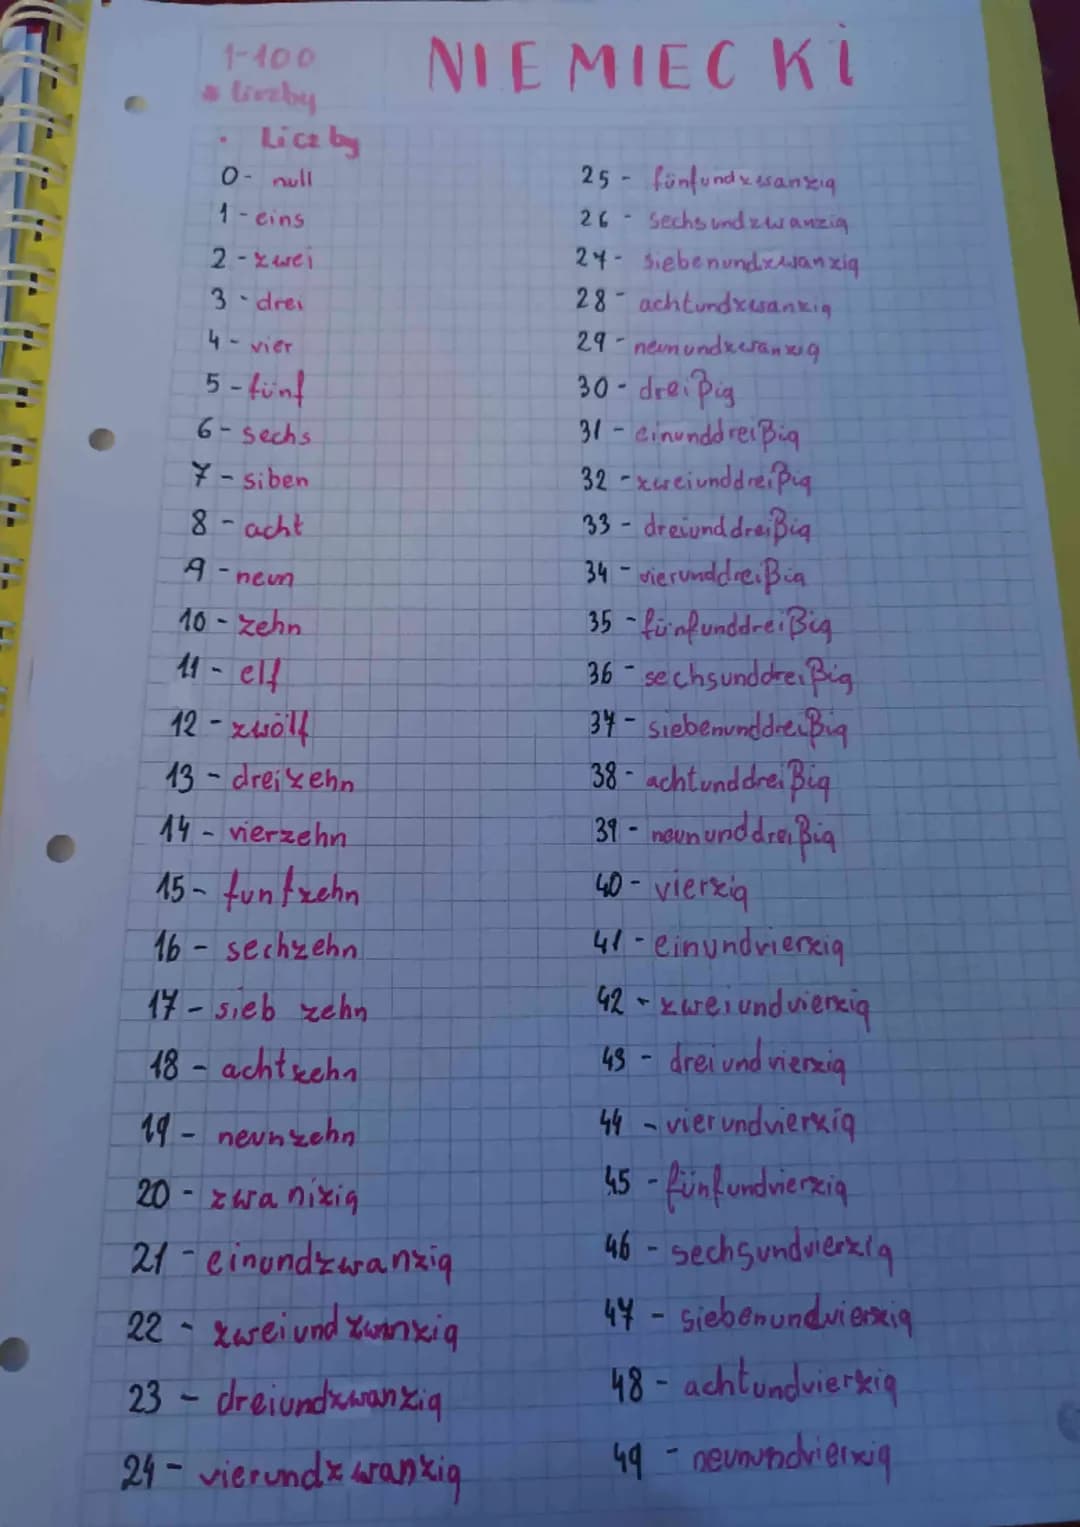 NIEMIECKi
1-100
* liczby
• Liczby
0 - null
1 - eins
2 - zwei
3 - drei
4 - vier
5 - fünf
6 - sechs
7 - siben
8 - acht
9 - neun
10 - zehn
11 - elf
12 - zwölf
13 - dreizehn
14 - vierzehn
15 - funfzehn
16 - sechzehn
17 - sieb zehn
18 - achtzehn
19 - neunzehn
20 - zwanizig
21 - einundzwanzig
22 - zweiundzwanzig
23 - dreiundzwanzig
24 - vierundzwanzig
25 - fünfundzwanzig
26 - sechsundzwanzig
27 - siebenundzwanzig
28 - achtundzwanzig
29 - neunundzwanzig
30 - dreißig
31 - einunddreißig
32 - zweiunddreißig
33 - dreiunddreißig
34 - vierunddreißig
35 - fünfunddreißig
36 - sechsunddreißig
37 - siebenunddreißig
38 - achtunddreißig
39 - neununddreißig
40 - vierzig
41 - einundvierzig
42 - zweiundvierzig
43 - dreiundvierzig
44 - vierundvierzig
45 - fünfundvierzig
46 - sechsundvierzig
47 - siebenundvierzig
48 - achtundvierzig
49 - neunundvierzig